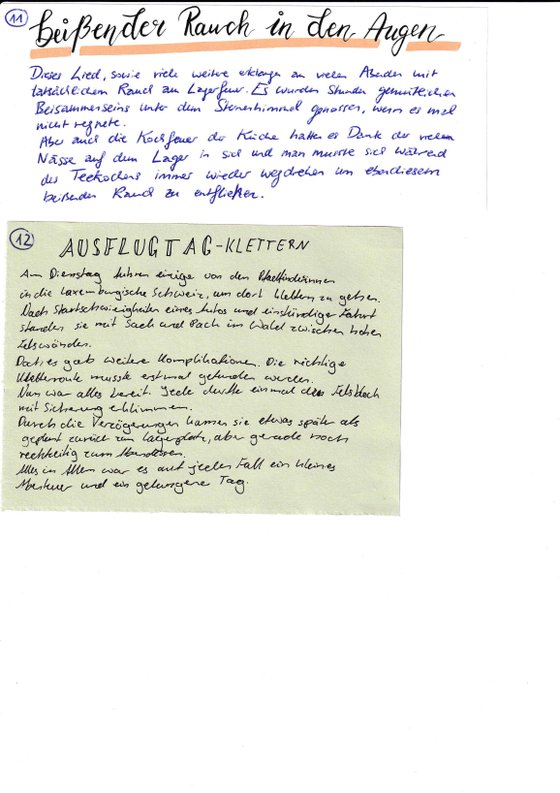 11
beißender Rauch in den Augen
Dieses Lied, sowie viele weitere erklangen an vielen Abenden mit
tatsächlichem Rauch am Lagerfeuer. Es wurden Stunden gemütlichen
Beisammenseins unter dem Sternenhimmel genossen, wenn es mal
nicht regnete.
Aber auch die Kochfeuer der Küche hatten es Dank der vielen
Nässe auf dem Lager in sich und man musste sich während
des Teekochens immer wieder wegdrehen um ebendiesem
beißenden Rauch zu entfliehen.
12
AUSFLUGTAG-KLETTERN
Am Dienstag fuhren einige von den Pfadfinderinnen
in die Luxemburgische Schweiz, um dort klettern zu gehen.
Nach Startschwierigkeiten eines Autos und einstündiger Fahrt
standen sie mit Sack und Pack im Wald zwischen hohen
Felswänden.
Doch es gab weitere Komplikationen. Die richtige
Kletteroute musste erstmal gefunden werden.
Nun war alles bereit. Jede durfte einmal das Felsdach
mit Sicherung erklimmen.
Durch die Verzögerungen kamen sie etwas später als
geplant zurück zum Lagerplatz, aber gerade noch
rechtzeitig zum Abendessen.
Alles in Allem war es auf jeden Fall ein kleines
Abenteuer und ein gelungener Tag.